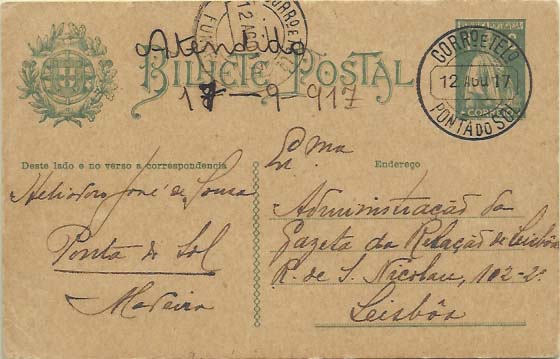 Atendido
BILHETE POSTAL
17-9-917
CORRO E TELO
12 AGO 17
PONTA DO SOL
CORRO E
12 AG
FUN
CORREIO
Deste lado e no verso a correspondencia
Endereço
Heliodoro José de Sousa
Ponta do Sol
Madeira
Exma
Administração da
Gazeta da Relação de Lisbôa
R. de S. Nicolau, 102-2º
Leisbôa